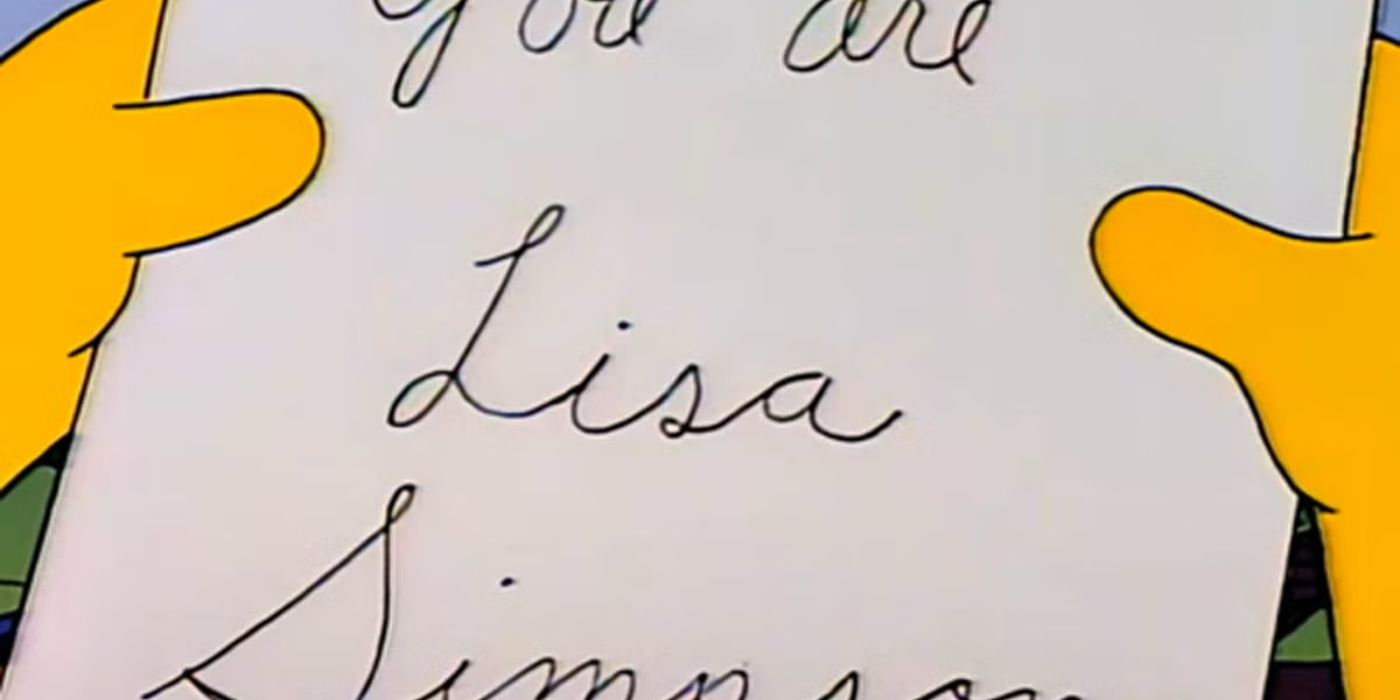 You are
Lisa
Simpson